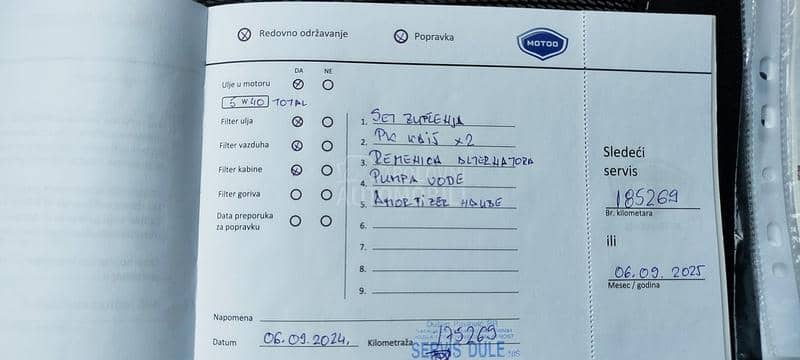 Redovno održavanje Popravka MOTOO
DA NE
Ulje u motoru
5W40 TOTAL
Filter ulja
Filter vazduha
Filter kabine
Filter goriva
Data preporuka
za popravku
1. SET ZUPČENJA
2. PK KAIŠ x2
3. REMENICA ALTERNATORA
4. PUMPA VODE
5. AMORTIZER HAUBE
6.
7.
8.
9.
Napomena
Datum 06.09.2024. Kilometraža 175269
SERVIS DULE
Sledeći
servis
185269
Br. kilometara
ili
06.09.2025
Mesec / godina